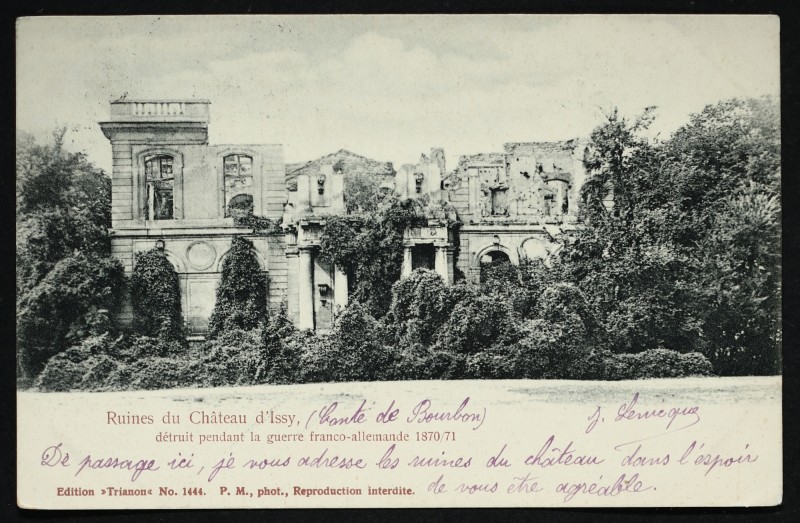 Ruines du Château d'Issy, (Conté de Bourbon) J. Lemicque
détruit pendant la guerre franco-allemande 1870/71
De passage ici, je vous adresse les ruines du château dans l'espoir
de vous être agréable.
Edition »Trianon« No. 1444. P. M., phot., Reproduction interdite.